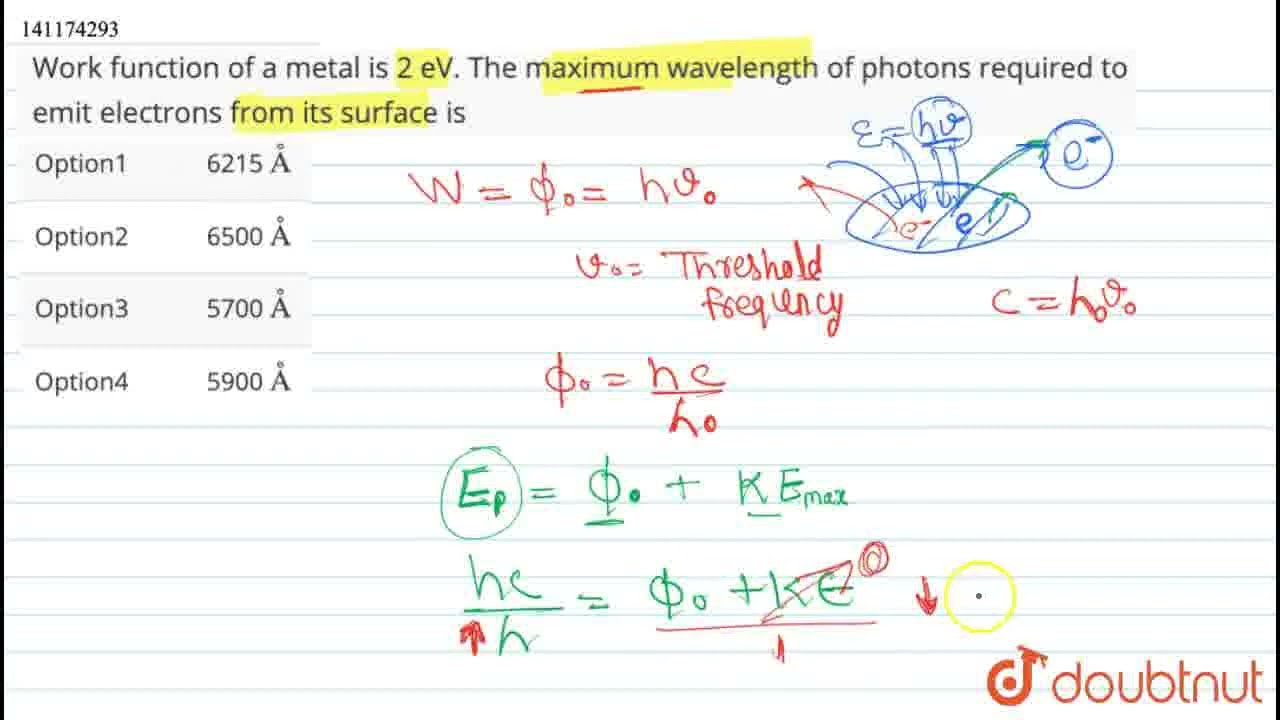 141174293
Work function of a metal is 2 eV. The maximum wavelength of photons required to
emit electrons from its surface is
Option1 6215 Å
Option2 6500 Å
Option3 5700 Å
Option4 5900 Å
ε = hν
e⁻
e⁻ e
W = ϕ₀ = hν₀
ν₀ = Threshold
frequency
C = λ₀ν₀
ϕ₀ = hc
λ₀
Eₚ = ϕ₀ + KEmax
hc = ϕ₀ + KE 0 ↓
↑ λ
doubtnut